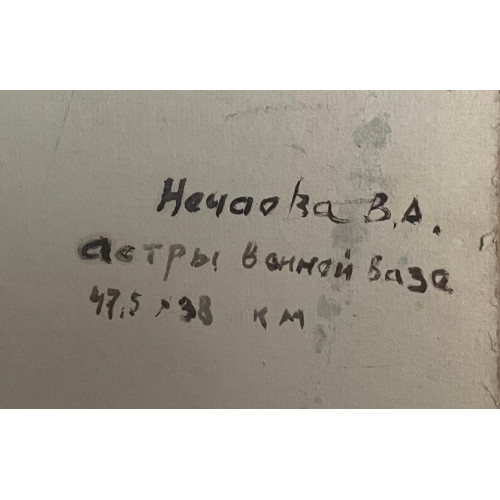 Нечаова В.А.
астры в онной вазе
47,5 × 38 к м